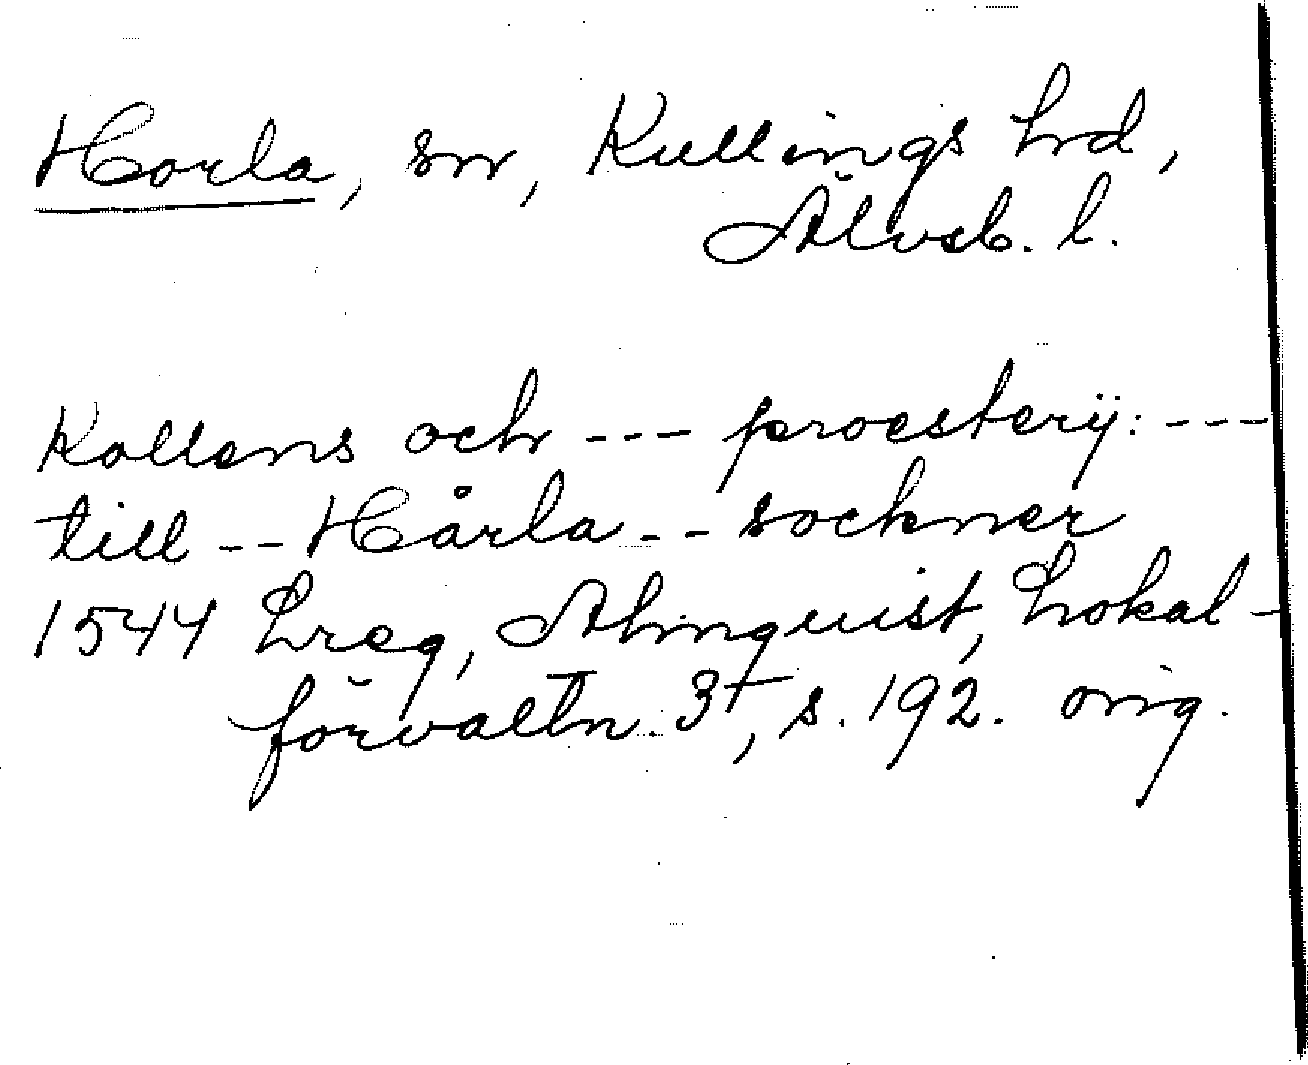 Horla, sn, Kullings hd,
Älvsb. l.
Kollens och --- proesterij: ---
till -- Hårla -- sockner
1544 Lreg, Almquist, Lokal-
förvaltn. 3+, s. 192. orig.